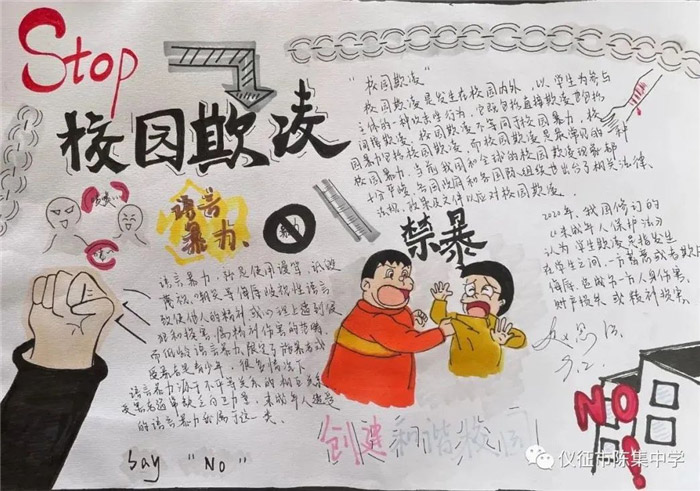 Stop
校园欺凌
"校园欺凌"
校园欺凌是发生在校园内外,以学生为参与
主体的一种攻击性行为,它既包括直接欺凌也包括
间接欺凌。校园欺凌不等同于校园暴力,校
园暴力包括校园欺凌,而校园欺凌是最常见的一种
校园暴力。当前我国和全球的校园欺凌现象都
十分严峻,各国政府和各国际组织也出台了相关法律、
法规、政策及文件以应对校园欺凌。
2020年,我国修订的
《未成年人保护法》
认为学生欺凌是指发生
在学生之间,一方蓄意或者欺上
侮辱,造成另一方人身伤害、
财产损失或精神损害。
语言
暴力
暴力
禁暴
语言暴力,就是使用谩骂、诋毁
蔑视、嘲笑等侮辱歧视性语言
致使他人的精神或心理上遭到侵
犯和损害,属精神伤害的范畴
很多情况下
语言暴力源于不平等关系的相互关系
的语言暴力就属于这一类。
创建和谐校园
say "NO"
NO!
仪征市陈集中学